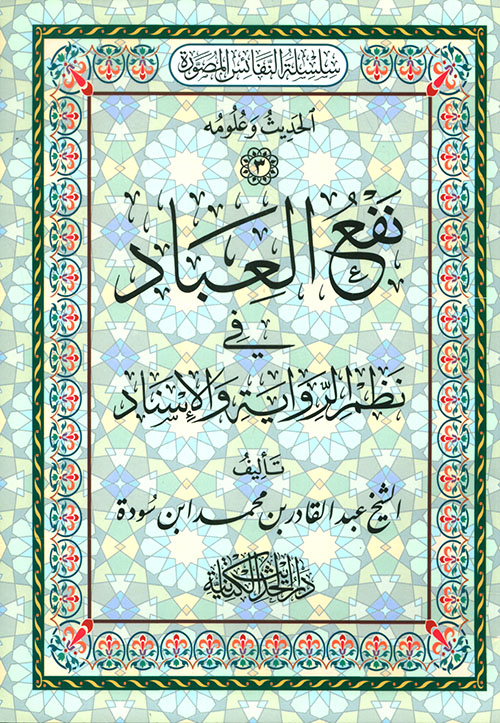 سلسلة النفائس المصورة
الحديث وعلومه
٣
نَفْعُ العِبَاد
في
نظم الرِّواية والإسناد
تأليف
الشيخ عبد القادر بن محمد ابن سُودة
دار الحديث الكتانية